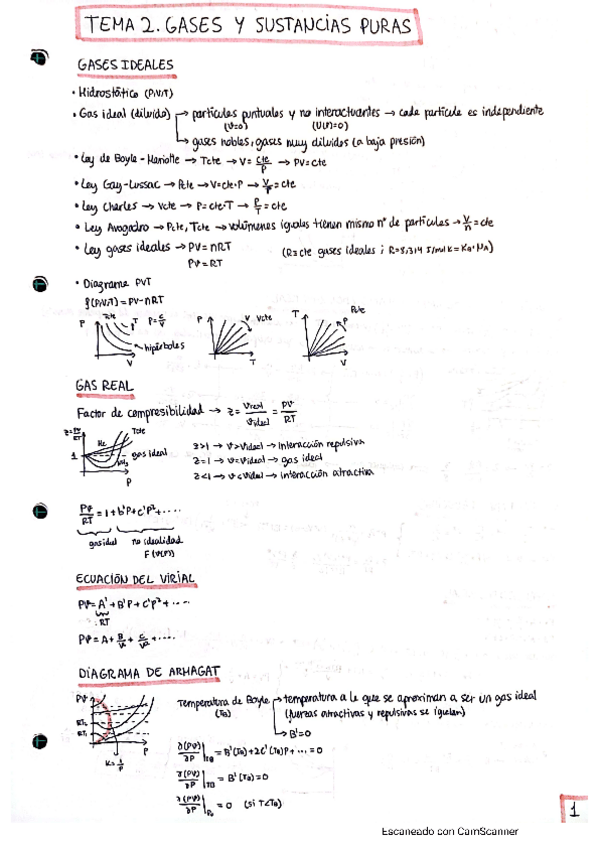 TEMA 2. GASES Y SUSTANCIAS PURAS
GASES IDEALES
• Hidrostático (P,V,T)
• Gas ideal (diluido) → partículas puntuales y no interactuantes → cada partícula es independiente
(V=0) (U(r)=0)
→ gases nobles, gases muy diluidos (a baja presión)
• Ley de Boyle-Mariotte → T cte → V = cte/P → PV = cte
• Ley Gay-Lussac → P cte → V = cte·P → V/P = cte
• Ley Charles → V cte → P = cte·T → P/T = cte
• Ley Avogadro → P cte, T cte → volúmenes iguales tienen mismo nº de partículas → V/n = cte
• Ley gases ideales → PV = nRT (R = cte gases ideales ; R = 8,314 J/mol K = KB·NA)
PV = RT
• Diagrama PVT
f(P,V,T) = PV - nRT
P T cte T P = c/V hipérboles V
P V V cte T
T P cte P V
GAS REAL
Factor de compresibilidad → z = Vreal/Videal = PV/RT
z = PV/RT T cte He 1 gas ideal P
z>1 → v>videal → interacción repulsiva
z=1 → v=videal → gas ideal
z<1 → v<videal → interacción atractiva
PV/RT = 1 + b'P + c'P² + ....
gas ideal no idealidad
F(U(r))
ECUACIÓN DEL VIRIAL
PV = A' + B'P + C'P² + ....
RT
PV = A + B/V + C/V² + ....
DIAGRAMA DE AMAGAT
PV RT₂ RT₁ P
Temperatura de Boyle → temperatura a la que se aproximan a ser un gas ideal
(TB) (fuerzas atractivas y repulsivas se igualan)
→ B'=0
∂(PV)/∂P |TB = B'(TB) + 2C'(TB)P + ... = 0
∂(PV)/∂P |TB = B'(TB) = 0
∂(PV)/∂P |P₀ = 0 (si T<TB)
1
Escaneado con CamScanner